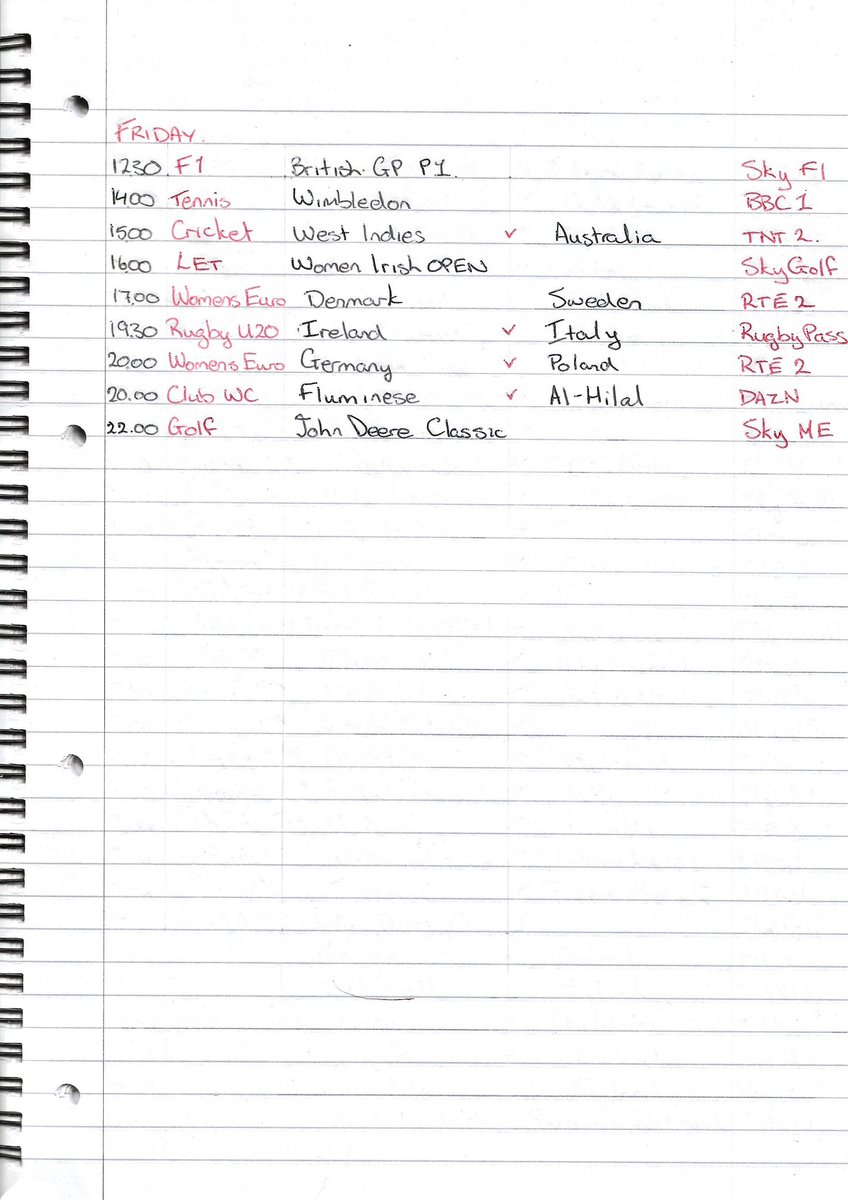 FRIDAY.
1230. F1 British GP P1. Sky F1
1400 Tennis Wimbledon BBC 1
1500 Cricket West Indies v Australia TNT 2.
1600 LET Women Irish OPEN Sky Golf
17.00 Womens Euro Denmark Sweden RTÉ 2
19.30 Rugby U20 Ireland v Italy RugbyPass
20.00 Womens Euro Germany v Poland RTÉ 2
20.00 Club WC Fluminese v Al-Hilal DAZN
22.00 Golf John Deere Classic Sky ME